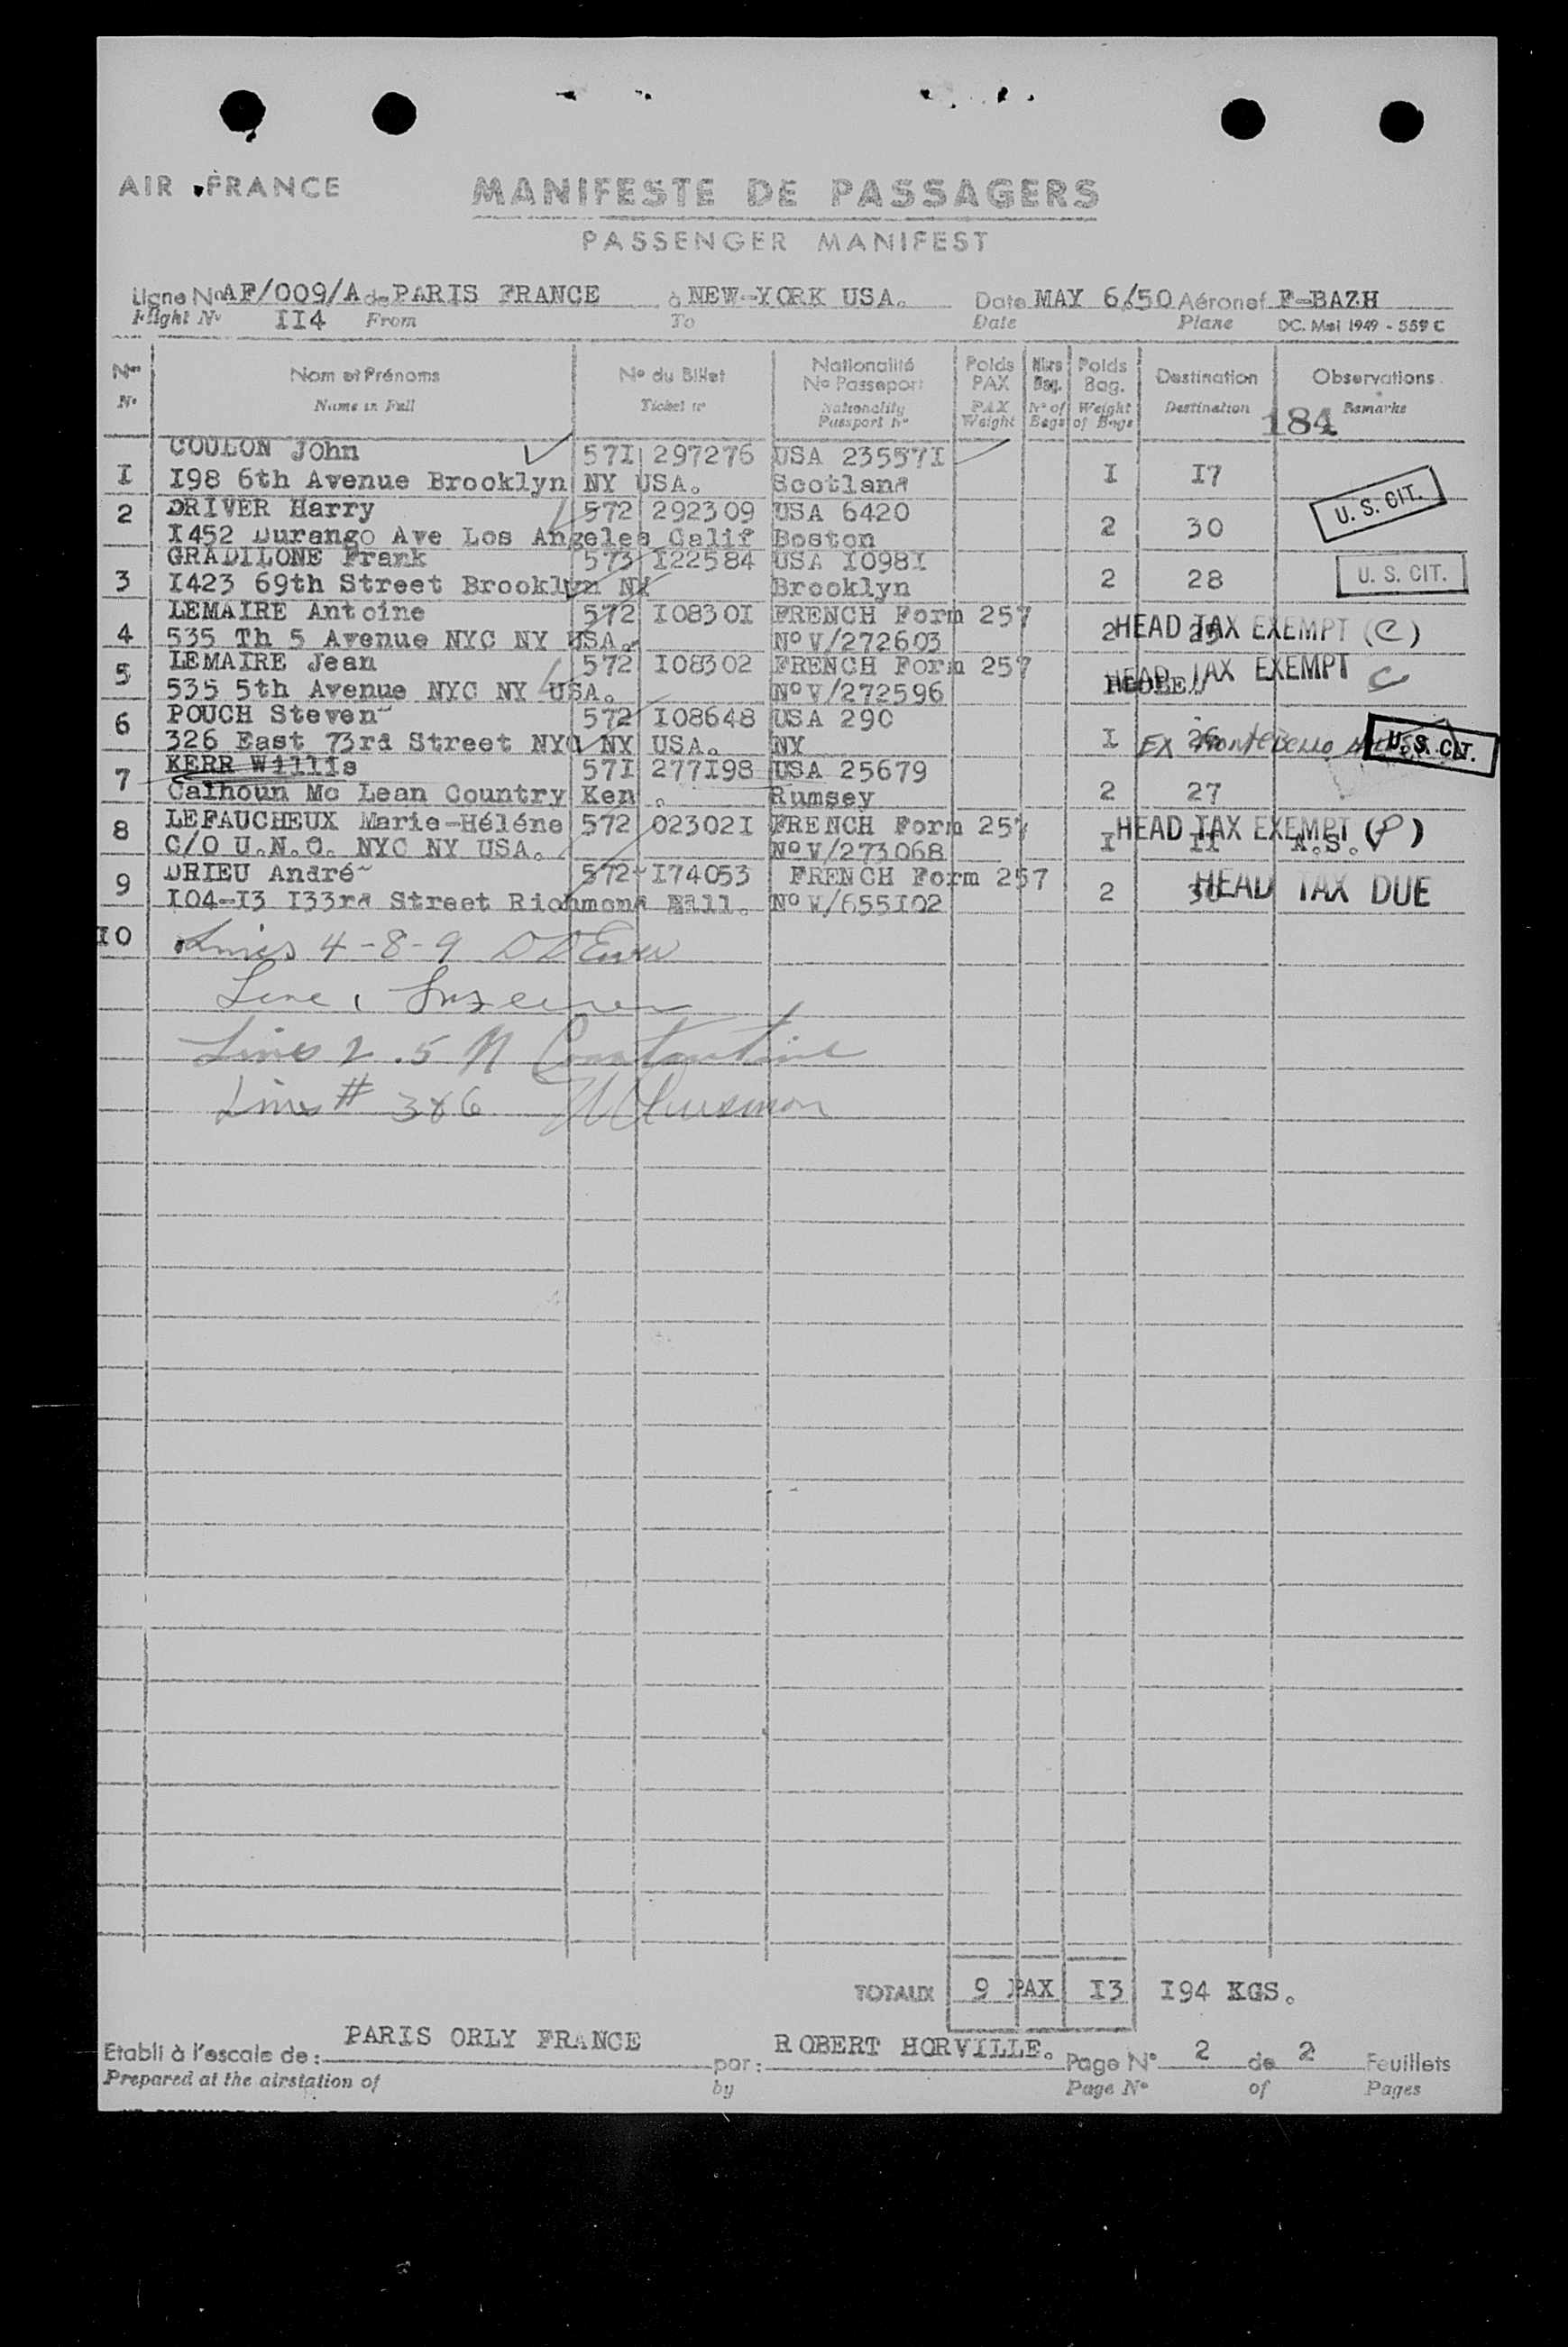 AIR FRANCE
MANIFESTE DE PASSAGERS
PASSENGER MANIFEST
Ligne No AF/009/A de PARIS FRANCE à NEW-YORK USA. Date MAY 6/50 Aéronef F-BAZH
Flight No II4 From To Date Plane DC. Mai 1949 - 559 C
Nos Nom et Prénoms No du Billet Nationalité No Passeport Poids PAX Nbre Bag. Poids Bag. Destination Observations
No Name in Full Ticket no Nationality Passport No PAX Weight No of Bags Weight of Bags Destination Remarks
184
COULON JOhn 57I 297276 USA 23557I
I I98 6th Avenue Brooklyn NY USA. Scotland I I7
2 DRIVER Harry 572 292309 USA 6420 U. S. CIT.
I452 Durango Ave Los Angeles Calif Boston 2 30
GRADILONE Frank 573 I22584 USA I098I
3 I423 69th Street Brooklyn NY Brooklyn 2 28 U. S. CIT.
LEMAIRE Antoine 572 I0830I FRENCH Form 257
4 535 Th 5 Avenue NYC NY USA. No V/272603 2 HEAD TAX EXEMPT (C)
5 LEMAIRE Jean 572 I08302 FRENCH Form 257 HEAD TAX EXEMPT C
535 5th Avenue NYC NY USA. No V/272596
6 POUCH Steven 572 I08648 USA 290
326 East 73rd Street NYC NY USA. NY I 26 EX Montebello U. S. CIT.
7 KERR Willis 57I 277I98 USA 25679
Calhoun Mc Lean Country Ken. Rumsey 2 27
8 LEFAUCHEUX Marie-Héléne 572 02302I FRENCH Form 257 HEAD TAX EXEMPT (P)
C/O U.N.O. NYC NY USA. No V/273068 I II
9 DRIEU André 572 I74053 FRENCH Form 257 HEAD TAX DUE
I04-I3 I33rd Street Richmond Hill. No V/655I02 2 30
I0 Lines 4-8-9
Line 1
Lines 2.5 N Constantine
Lines # 3&6
TOTAUX 9 PAX I3 I94 KGS.
Etabli à l'escale de: PARIS ORLY FRANCE par: ROBERT HORVILLE. Page No 2 de 2 Feuillets
Prepared at the airstation of by Page No of Pages